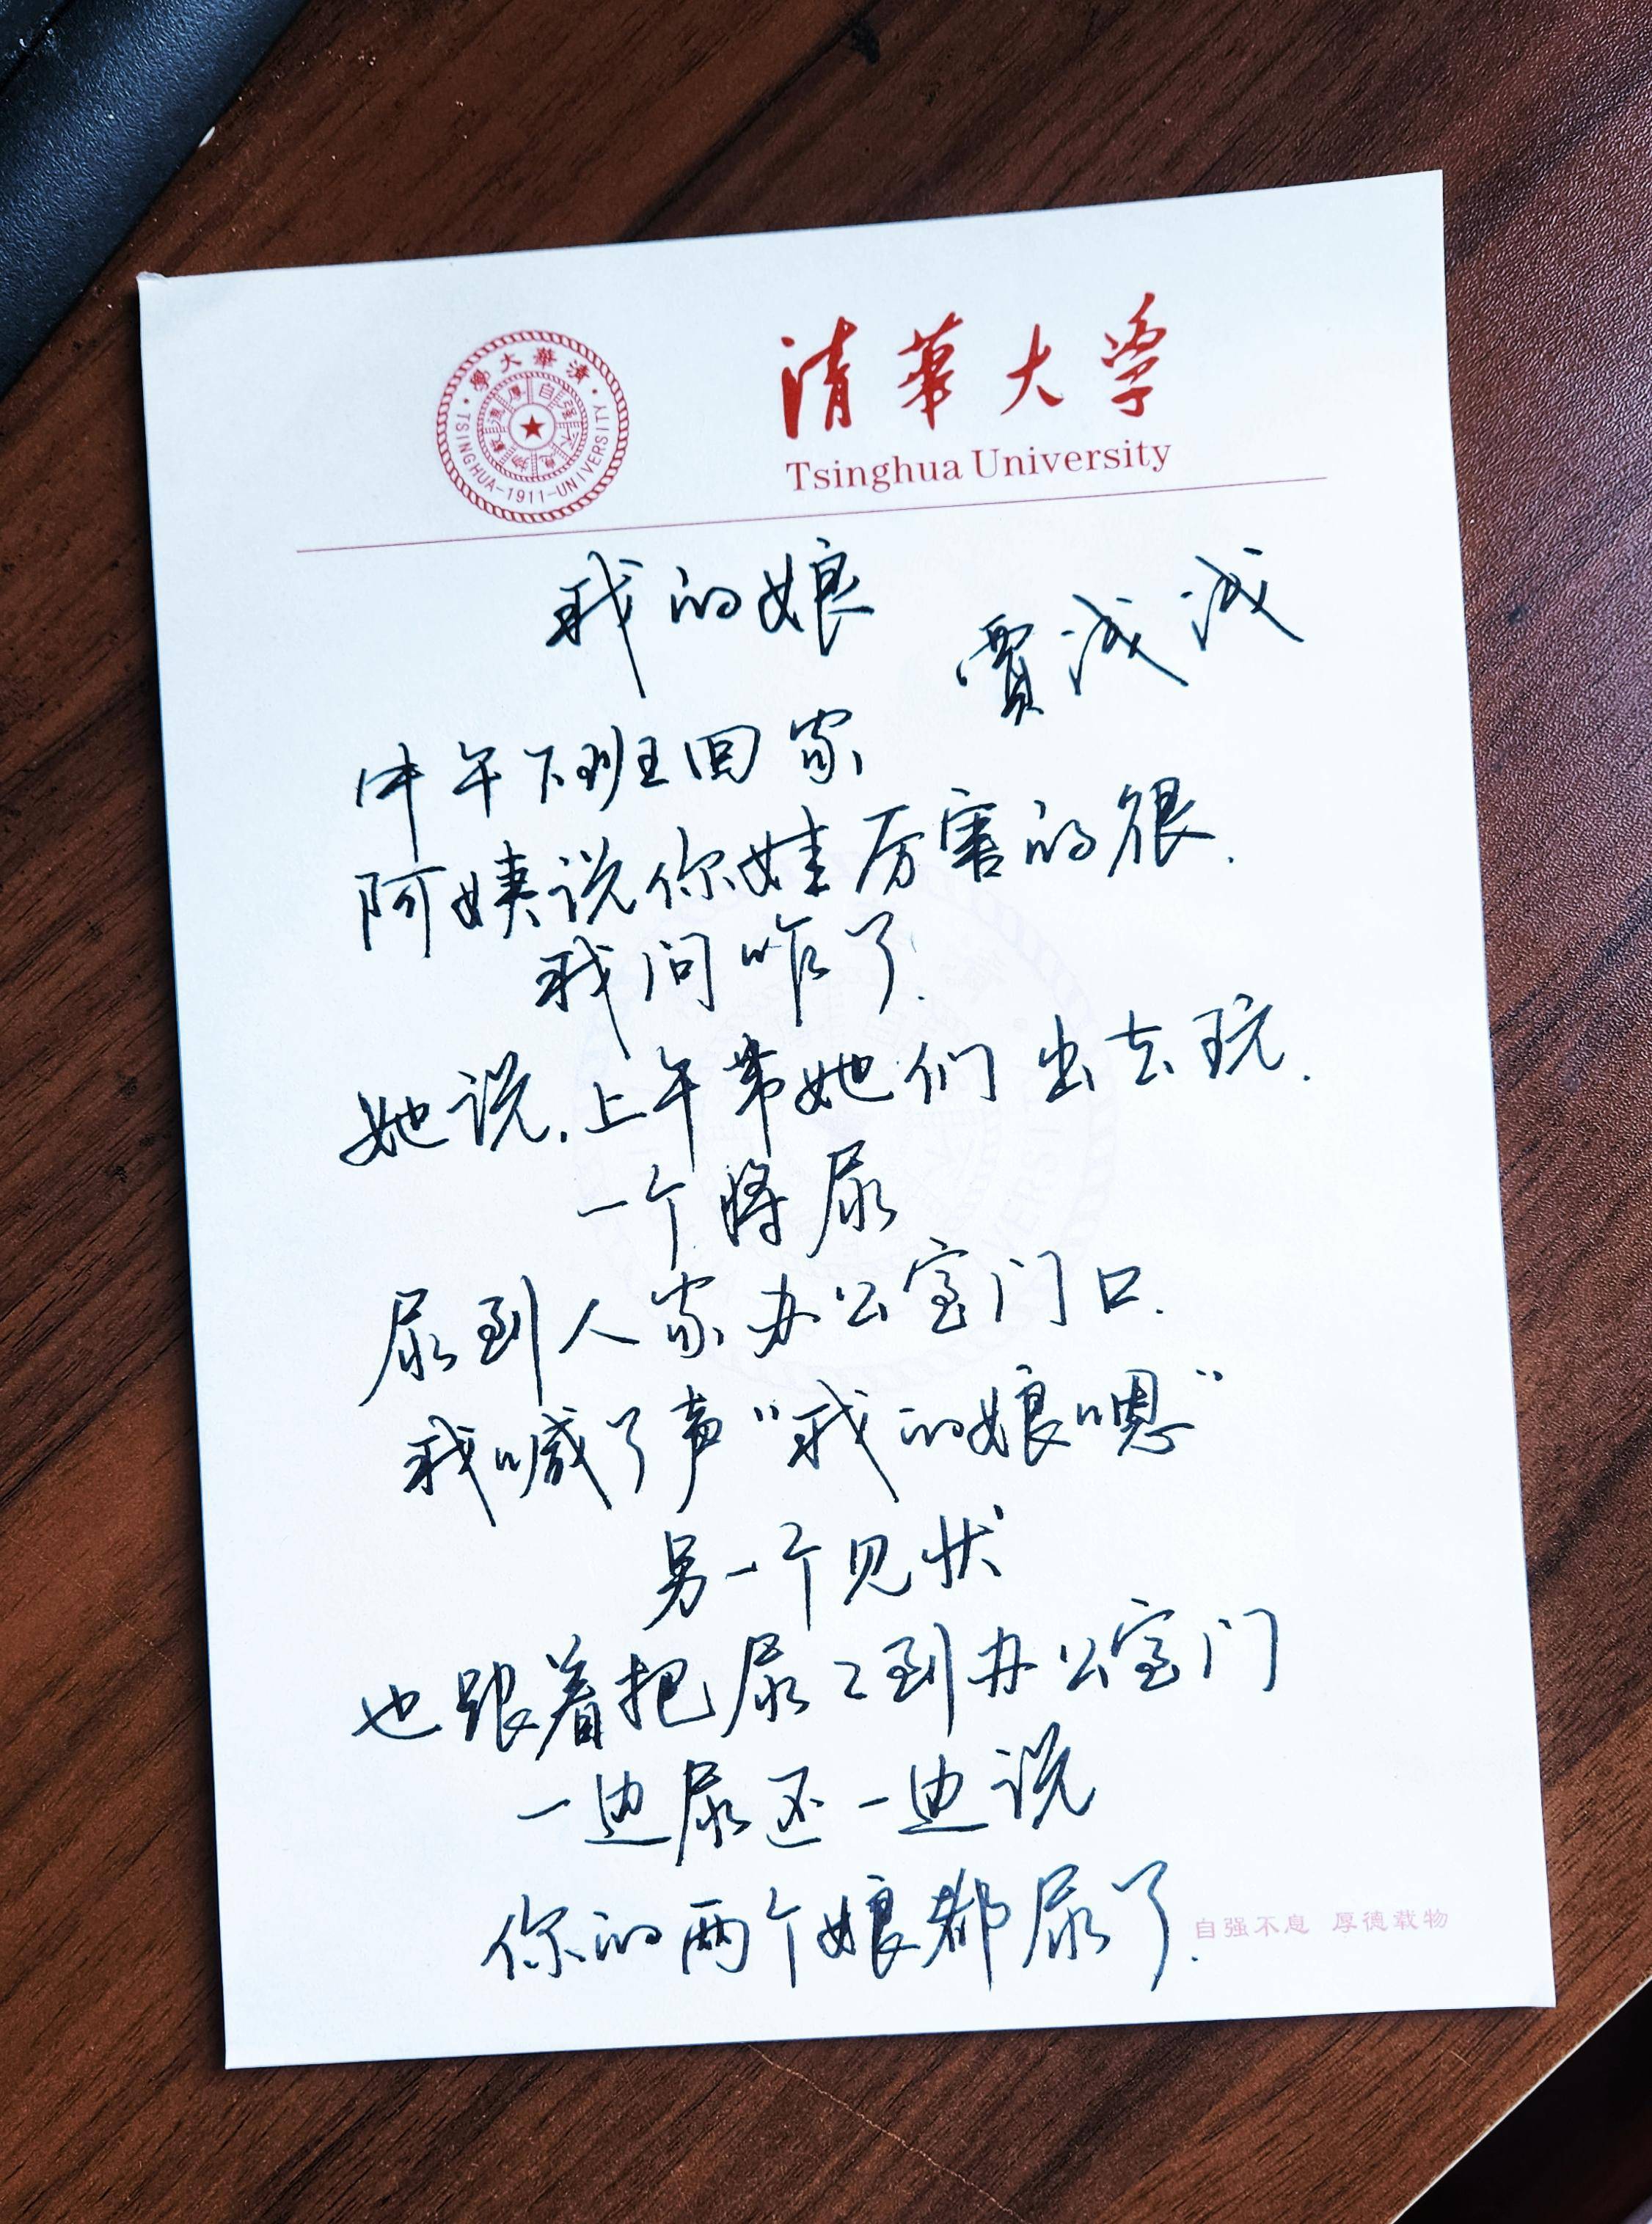 清華大学
Tsinghua University
清華大學
TSINGHUA-1911-UNIVERSITY
自强不息
厚德載物
我的娘
贾浅浅
中午下班回家
阿姨说你娃厉害的很.
我问咋了.
她说.上午带她们出去玩.
一个将尿
尿到人家办公室门口.
我喊了声“我的娘嗯”
另一个见状
也跟着把尿尿到办公室门
一边尿还一边说
你的两个娘都尿了.
自强不息 厚德载物